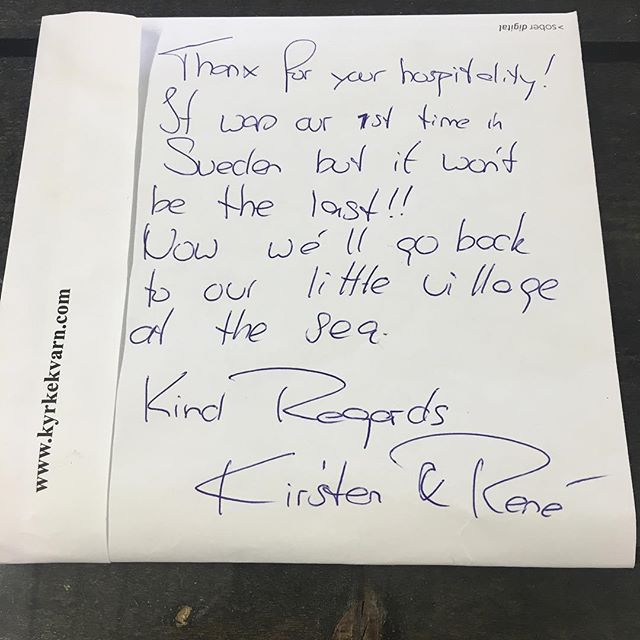 >sober digital
Thanx for your hospitality!
It was our 1st time in
Sweden but it won't
be the last!!
Now we'll go back
to our little village
at the sea.
Kind Regards
Kirsten & René
www.kyrkekvarn.com